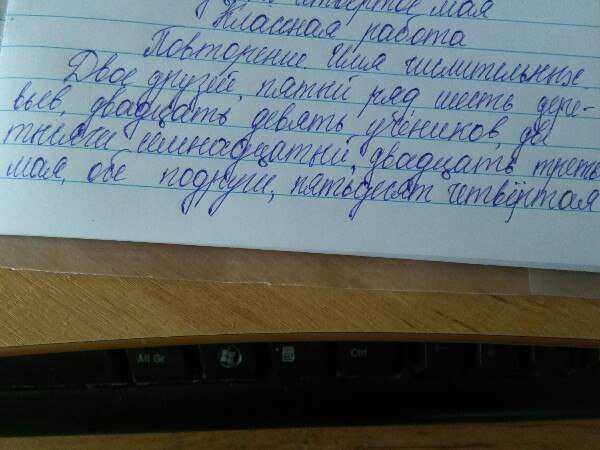 четвертое мая
Классная работа
Повторение Имя числительных.
Двое друзей, пятый ряд шесть дере-
вьев, двадцать девять учеников, две
тысячи семнадцатый, двадцать третье
мая, обе подруги, пятьдесят четвёртая
Alt Gr
Ctrl